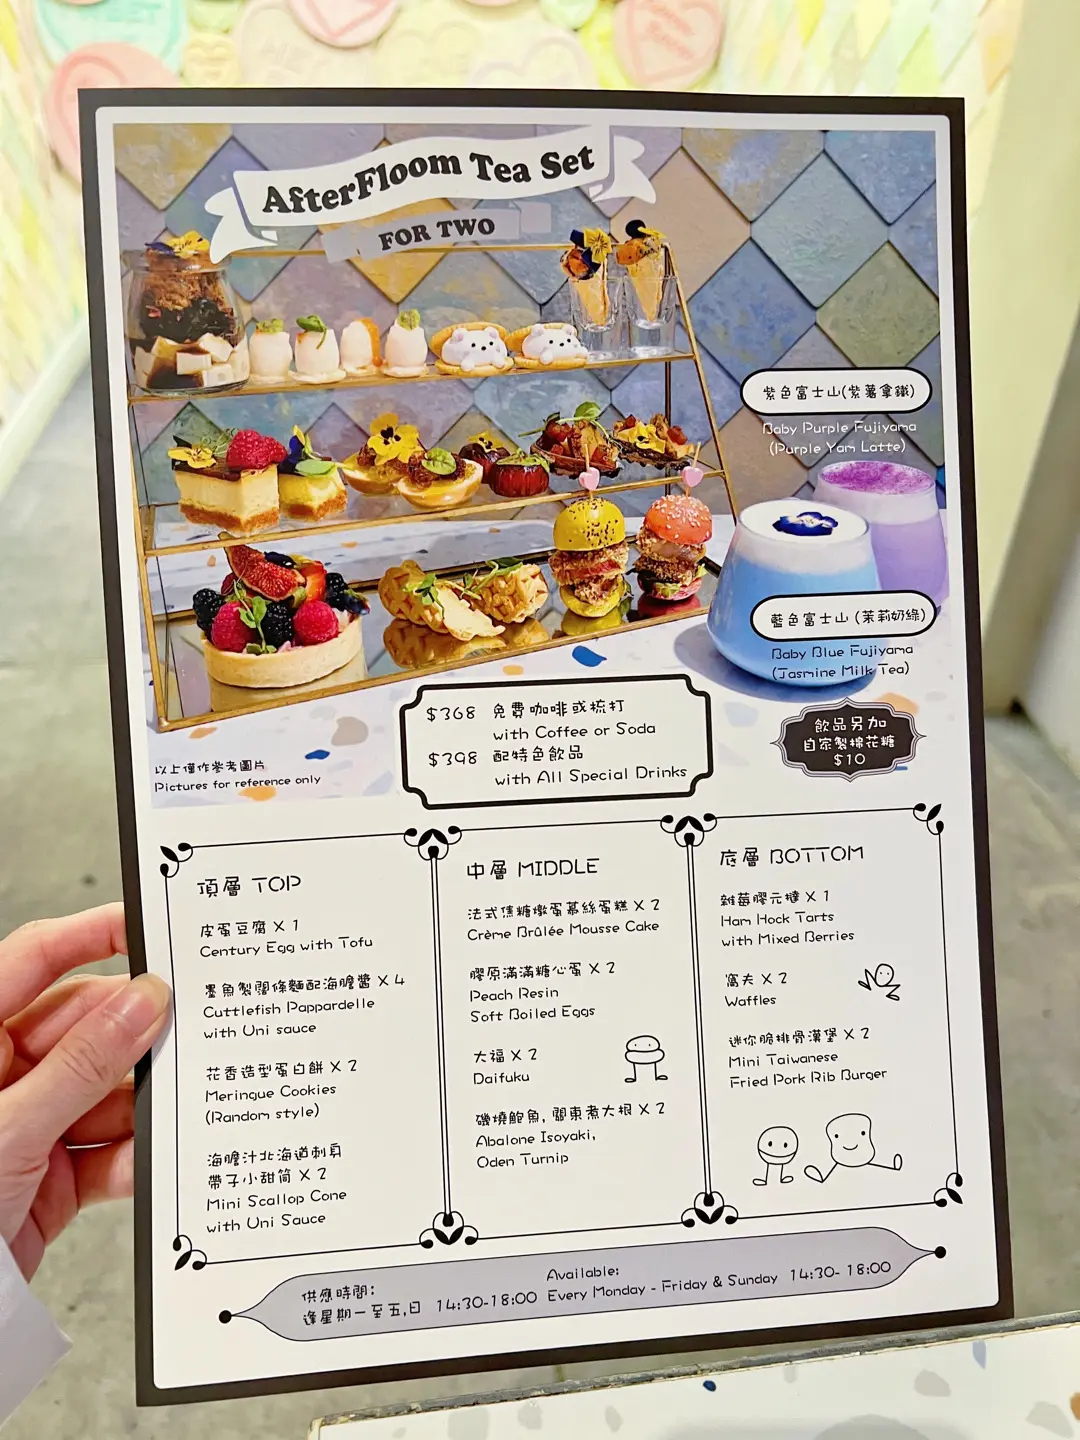 AfterFloom Tea Set
FOR TWO
紫色富士山(紫薯拿鐵)
Baby Purple Fujiyama
(Purple Yam Latte)
藍色富士山 (茉莉奶綠)
Baby Blue Fujiyama
(Jasmine Milk Tea)
$368 免費咖啡或梳打
with Coffee or Soda
$398 配特色飲品
with All Special Drinks
飲品另加
自家製棉花糖
$10
以上僅作參考圖片
Pictures for reference only
頂層 TOP
皮蛋豆腐 X 1
Century Egg with Tofu
墨魚製闊條麵配海膽醬 X 4
Cuttlefish Pappardelle
with Uni sauce
花香造型蛋白餅 X 2
Meringue Cookies
(Random style)
海膽汁北海道刺身
帶子小甜筒 X 2
Mini Scallop Cone
with Uni Sauce
中層 MIDDLE
法式焦糖燉蛋慕絲蛋糕 X 2
Crème Brûlée Mousse Cake
膠原滿滿糖心蛋 X 2
Peach Resin
Soft Boiled Eggs
大福 X 2
Daifuku
磯燒鮑魚, 關東煮大根 X 2
Abalone Isoyaki,
Oden Turnip
底層 BOTTOM
雜莓膠元撻 X 1
Ham Hock Tarts
with Mixed Berries
窩夫 X 2
Waffles
迷你脆排骨漢堡 X 2
Mini Taiwanese
Fried Pork Rib Burger
供應時間:
逢星期一至五,日 14:30-18:00
Available:
Every Monday - Friday & Sunday 14:30- 18:00